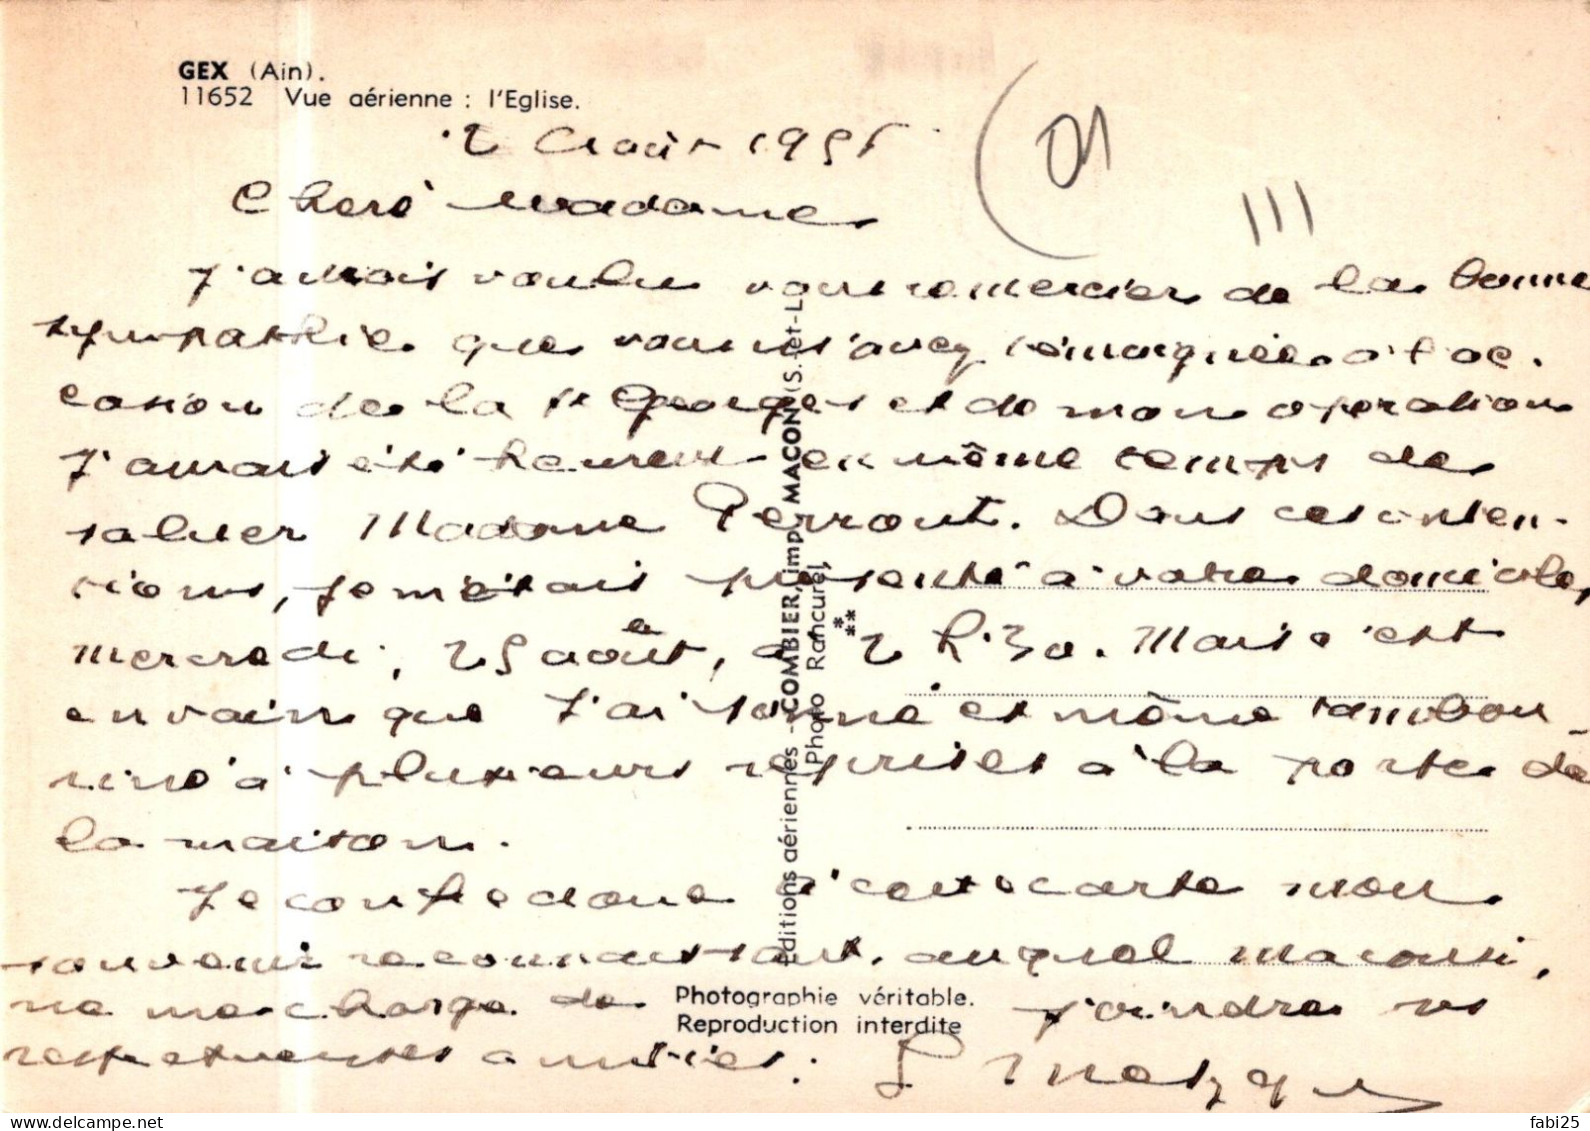 GEX (Ain).
11652 Vue aérienne : l'Eglise.
2 Août 195
Chère Madame
J'aurais voulu vous remercier de la bonne
sympathie que vous m'avez témoignée à l'oc.
casion de la St Georges et de mon opération
J'aurais été heureux en même temps de
saluer Madame Perrout. Dans ces inten-
tions, je m'étais présenté à votre domicile,
mercredi, 25 août, à 2 h.30. Mais c'est
en vain que j'ai sonné et même tambou-
riné à plusieurs reprises à la porte de
la maison.
Je confie donc à cette carte mon
souvenir reconnaissant, auquel ma cousi,
ne me charge de joindre ses
respectueuses amitiés.
Photographie véritable.
Reproduction interdite
Editions aériennes - COMBIER, imp. MACON (S.-et-L.)
Photo Rancurel
01
III
fabi25